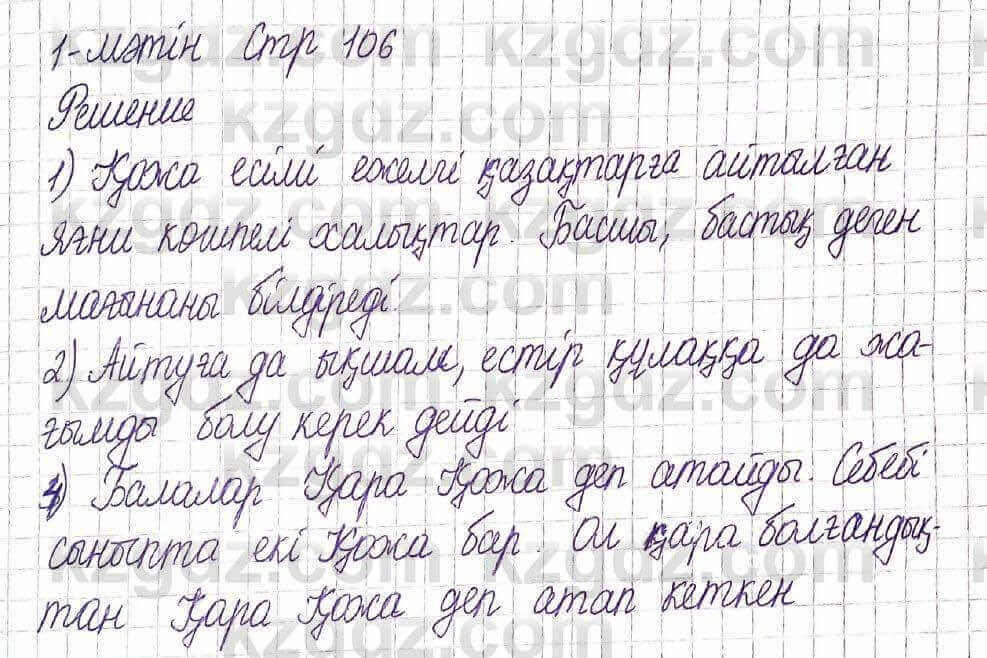 1-мәтін Стр 106
Решение
1) Қожа есімі ежелгі қазақтарға айтылған
яғни көшпелі халықтар. Басшы, бастық деген
мағынаны білдіреді.
2) Айтуға да ықшам, естір құлаққа да жа-
ғымды болу керек дейді
4) Балалар Қара Қожа деп атайды. Себебі
сыныпта екі Қожа бар. Ол қара болғандық-
тан Қара Қожа деп атап кеткен
kzgdz.com